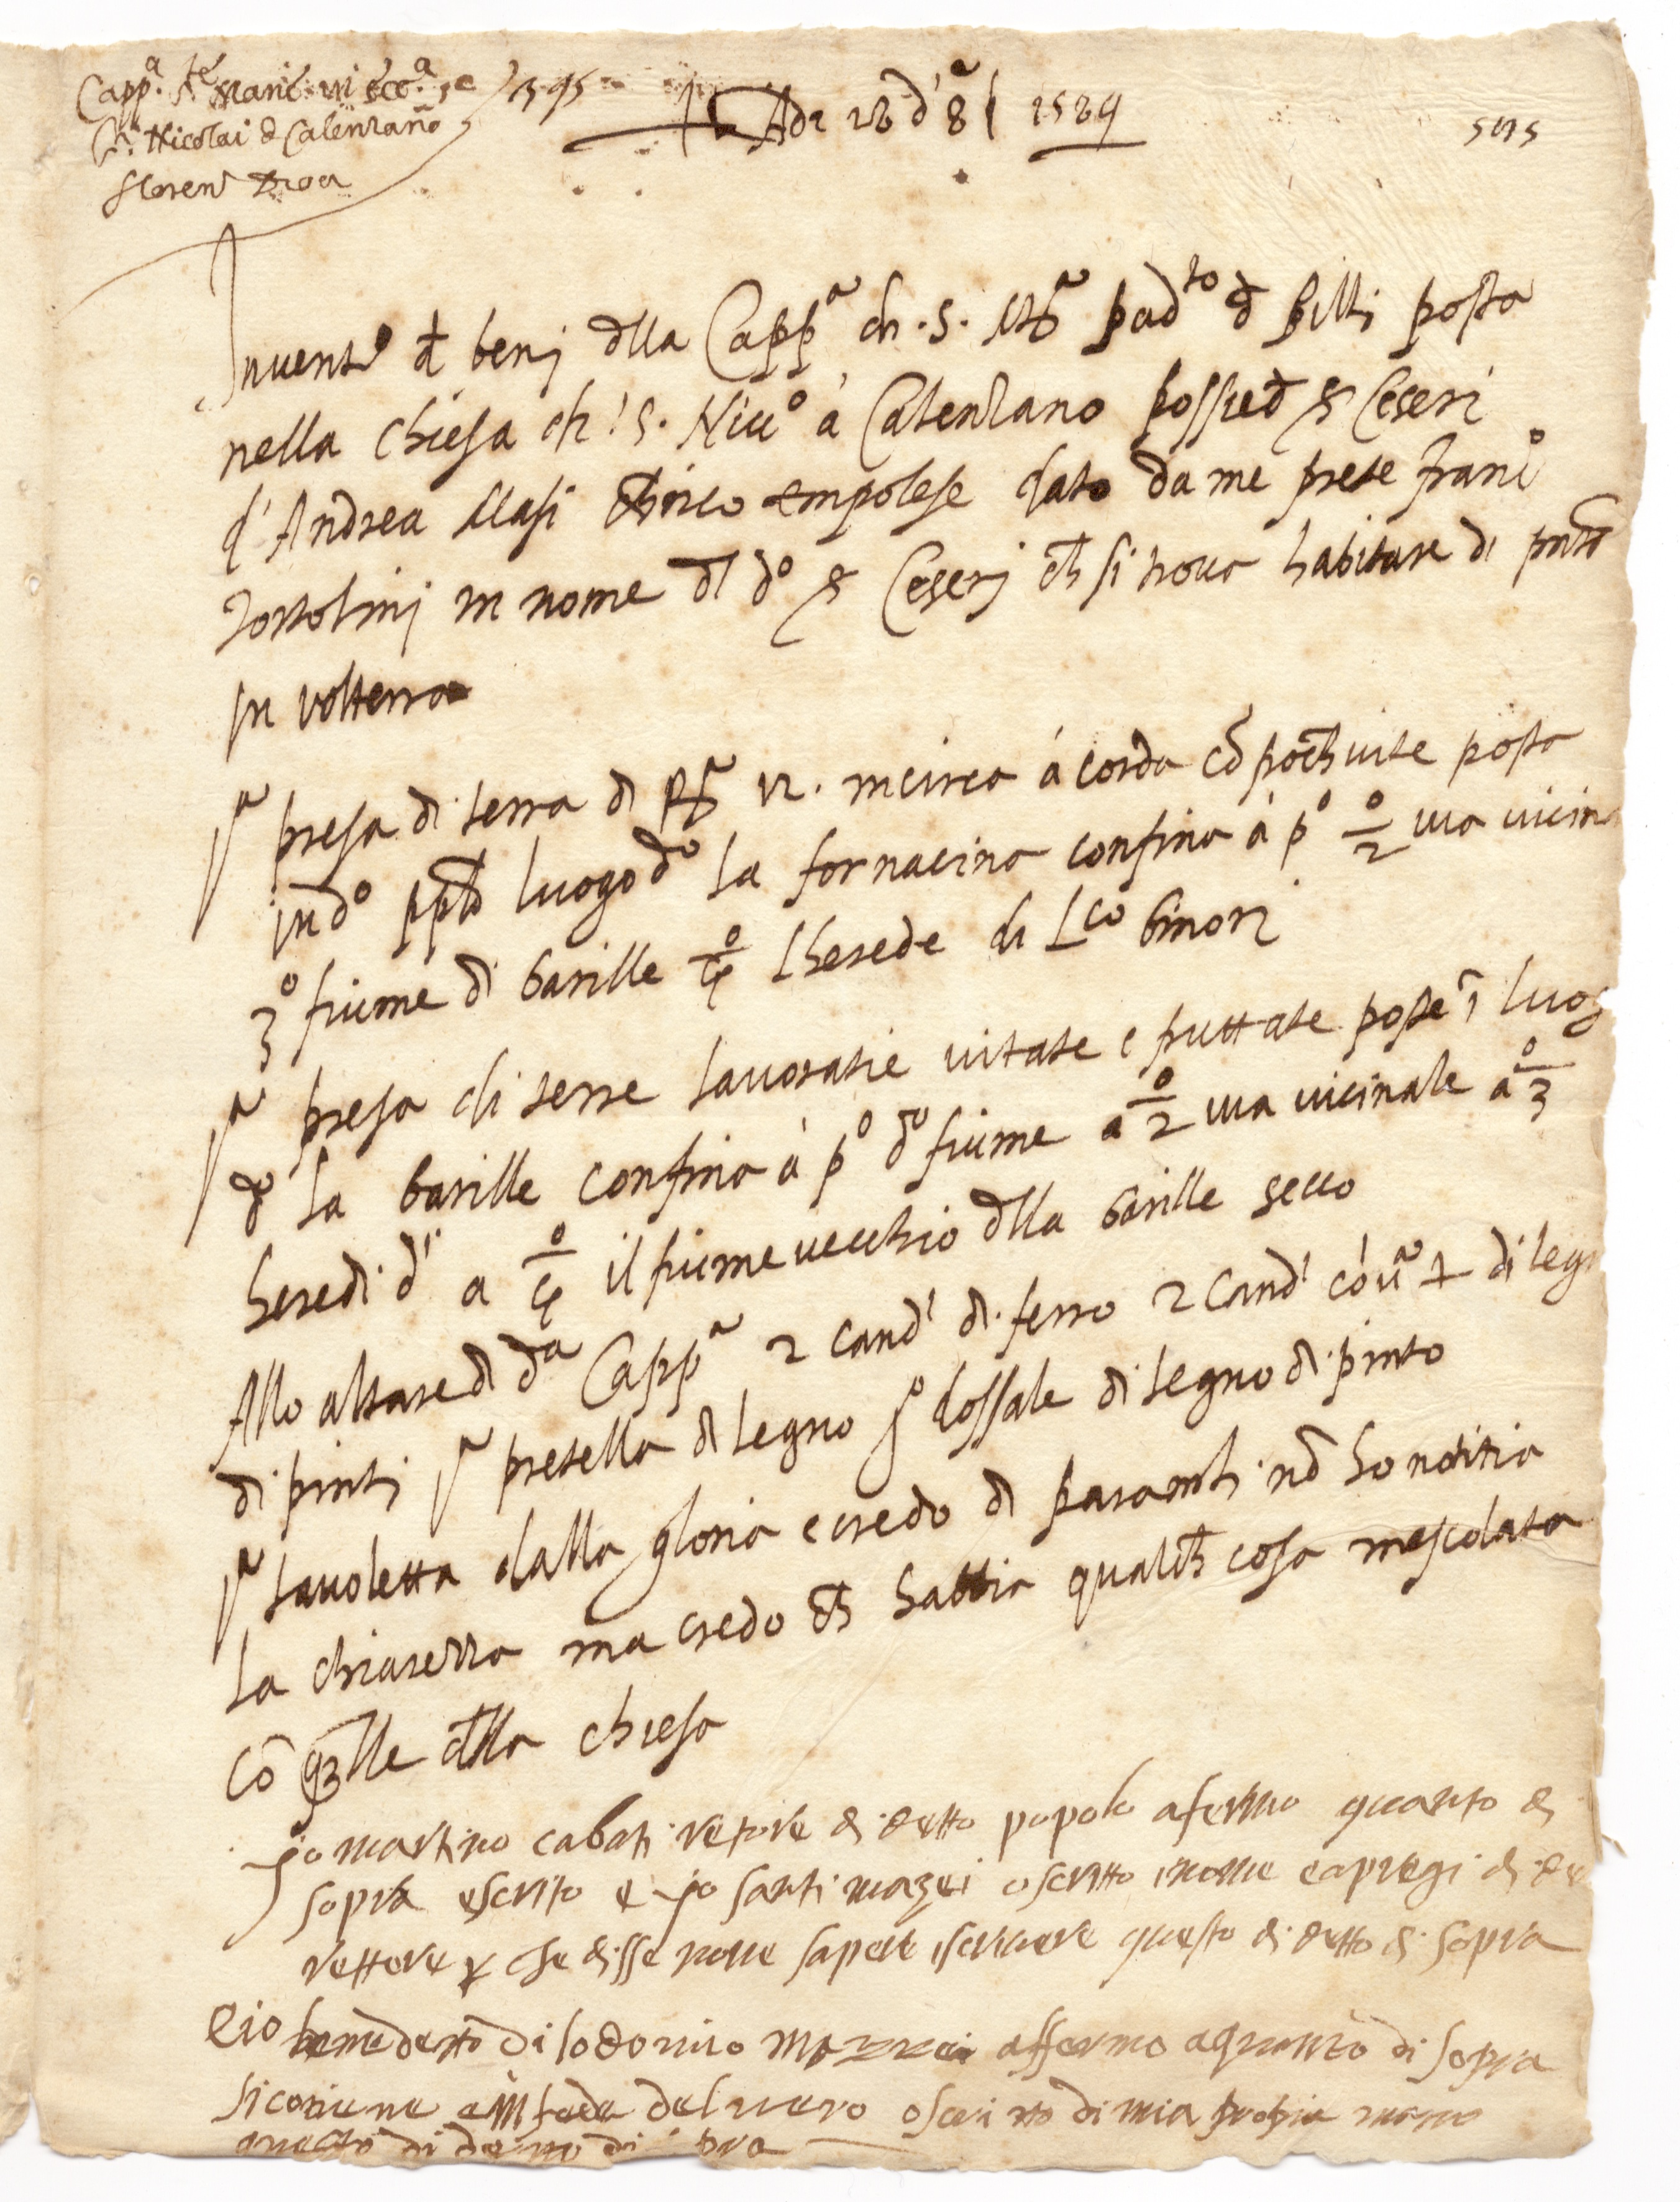 Capp.a S.te Marie in ecc.a
S. Nicolai d Calenzano
floren
Adi 28 d' 8 1589
595
Invent.o d benj dlla Capp.a di .S. M.a pad.to d pilli posta
nella chiesa di S. Nicc.o à Calenzano possied s Ceseri
d'Andrea Masi empolese dato da me prete franc.o
Tortolinj in nome dl d.o s Ceserj ch si trova habitare di pnte
in volterra
1.a presa di terra di 12. incirca à corda cō poch vite posta
in d.o pplo luogo d.o la fornacina confina à p.o 2.o via vicin
3.o fiume di barille 4.o lherede di L.co Ginori
1.a presa di terre lavoratie vitate e fruttate poste ī luog
d.o la barille confina à p.o d.o fiume a 2.o via vicinale a 3.o
heredi d' a 4.o il fiume vecchio dlla barille secco
Allo altare di d.a Capp.a 2 cand' di ferro 2 cand' cō u.a + di leg
di pinti 1.a predella di legno 1.o dossale di legno di pinto
1.a tavoletta dalla gloria e credo di paramti nō ho notitia
la chiarezza ma credo ch habbia qualch cosa mescolata
cō qlle dlla chiesa
jo martino cabati retore di detto popolo afermo quanto di
sopra escrito e jo santi mazei o scritto inome e apregi di de
rettore p che disse none sapere iscrivere questo di detto di sopra
E io benedetto di lodovico Mazzei affermo a quanto di sopra
si contiene e in fede del vero o scritto di mia propria mano
questo di detto di sopra